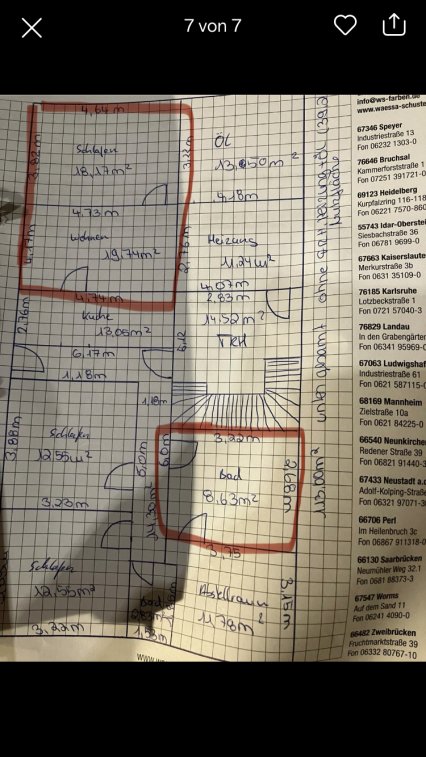 7 von 7
4,64m
Schlafen
18,17m²
3,92m
3,22m
ÖL
13,050m²
4,18m
4,73m
Wohnen
19,74m²
4,17m
2,75m
Heizung
11,24m²
4,07m
4,74m
2,83m
Küche
13,05m²
2,76m
14,52m²
TRH
6,12
6,17m
1,18m
1,18m
3,22m
Schlafen
12,55m²
3,88m
Bad
8,63m²
2,68m
3,23m
3,75
Schlafen
12,55m²
Abstellraum
11,78m²
3,15m
Bad
3,22m
1,53m
113,00m²
unter gesamt
ohne
info@ws-farben.de
www.waessa-schuste
67346 Speyer
Industriestraße 13
Fon 06232 1303-0
76646 Bruchsal
Kammerforststraße 1
Fon 07251 391721-0
69123 Heidelberg
Kurpfalzring 116-118
Fon 06221 7570-860
55743 Idar-Oberste
Siesbachstraße 36
Fon 06781 9699-0
67663 Kaiserslaute
Merkurstraße 3b
Fon 0631 35109-0
76185 Karlsruhe
Lotzbeckstraße 1
Fon 0721 57040-3
76829 Landau
In den Grabengärter
Fon 06341 95969-0
67063 Ludwigshaf
Industriestraße 61
Fon 0621 587115-
68169 Mannheim
Zielstraße 10a
Fon 0621 84225-0
66540 Neunkirche
Redener Straße 39
Fon 06821 91440-3
67433 Neustadt a.d
Adolf-Kolping-Straße
Fon 06321 97071-3
66706 Perl
Im Heilenbruch 3c
Fon 06867 911318-0
66130 Saarbrücken
Neumühler Weg 32.1
Fon 0681 88373-3
67547 Worms
Auf dem Sand 11
Fon 06241 4090-0
66482 Zweibrücken
Fruchtmarktstraße 39
Fon 06332 80767-10